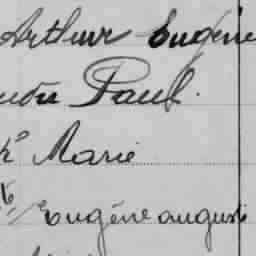 Arthur Eugène
Paul.
Marie
Eugène auguste